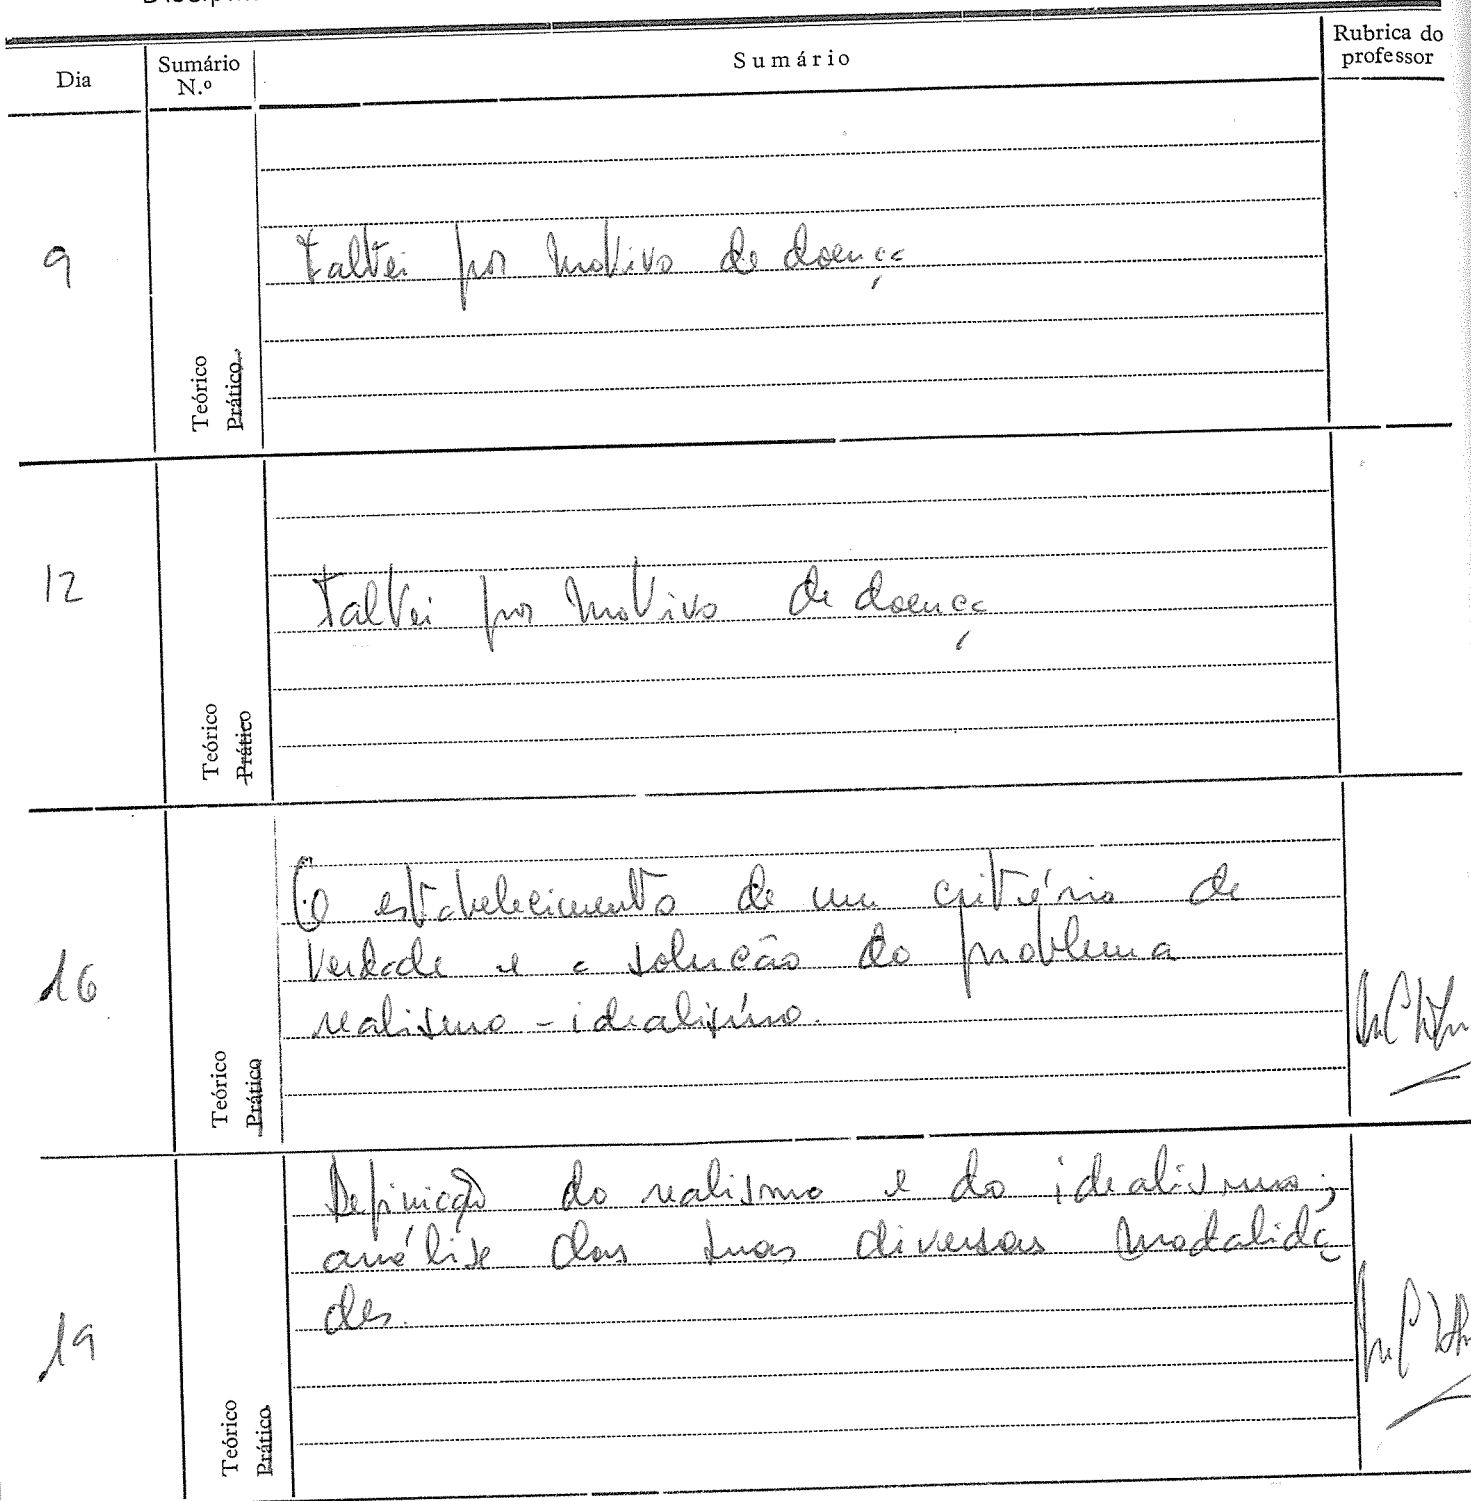 Dia
Sumário
N.º
Sumário
Rubrica do
professor
9
Teórico
Prático
Faltei por motivo de doença
12
Teórico
Prático
Faltei por motivo de doença
16
Teórico
Prático
O estabelecimento de um critério de
verdade e a solução do problema
realismo - idealismo.
19
Teórico
Prático
Definição do realismo e do idealismo;
análise das suas diversas modalida
des.